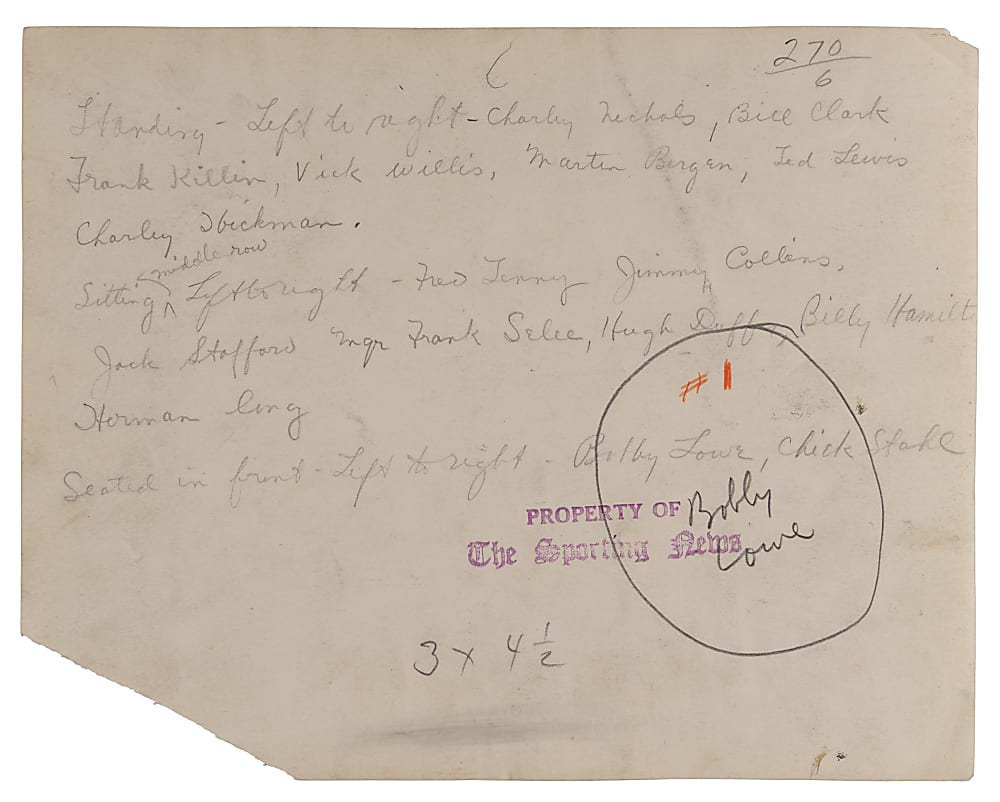 270
6
Standing - Left to right - Charley Nichols, Bill Clark
Frank Killin, Vick Willis, Martin Bergen, Ted Lewis
Charley Hickman.
middle row
Sitting Left to right - Fred Tenny Jimmy Collins,
Jack Stafford Mgr Frank Selee, Hugh Duffy, Billy Hamilt
Herman Long
Seated in front - Left to right - Bobby Lowe, Chick Stahl
# 1
PROPERTY OF
The Sporting News
Bobby
Lowe
3 x 4 1/2